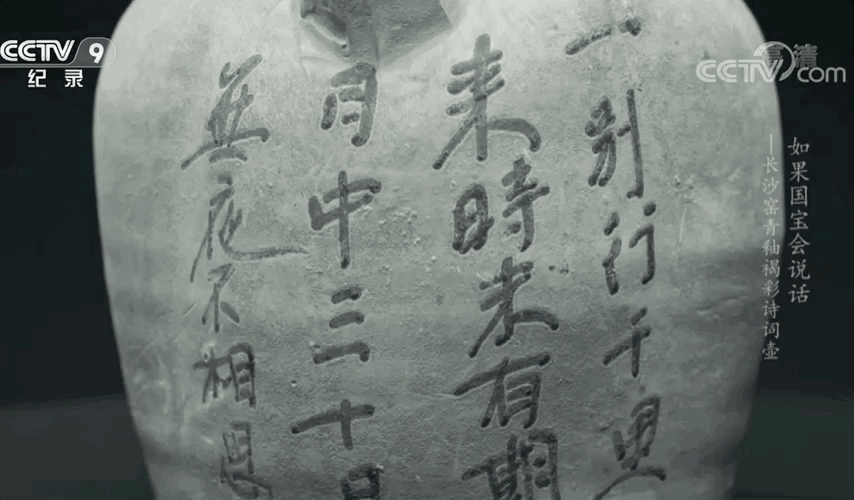 CCTV 9
纪录
CCTV.com
高清
如果国宝会说话
—长沙窑青釉褐彩诗词壶
一别行千里
来時未有期
月中三十日
無夜不相思